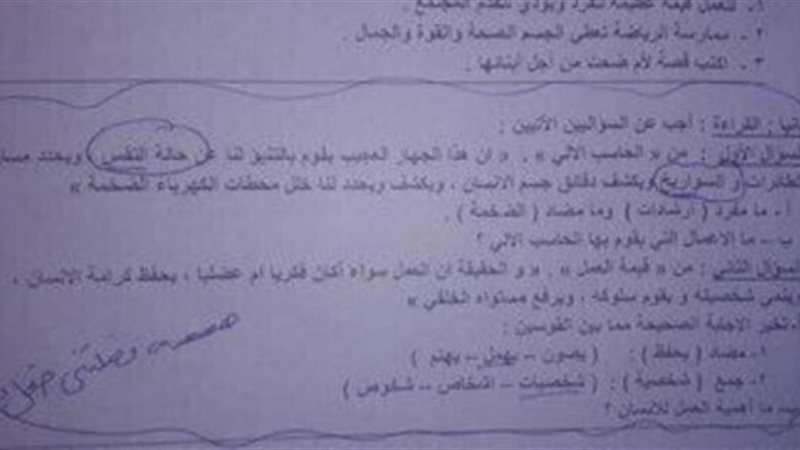 ١ـ للعمل قيمة عظيمة للفرد ويؤدي لتقدم المجتمع .
٢ـ ممارسة الرياضة تعطى الجسم الصحة والقوة والجمال .
٣ـ اكتب قصة لأم ضحت من اجل أبنائها .
القراءة : أجب عن السؤالين الآتيين :
السؤال الأول : من « الحاسب الآلي » . « ان هذا الجهاز العجيب يقوم بالتنبؤ لنا عن حالة النقس ، ويحدد مسار
الطائرات و السواريخ ويكشف دقائق جسم الانسان ، ويكشف ويحدد لنا خلل محطات الكهرباء الضخمة »
أ ـ ما مفرد ( ارشادات ) وما مضاد ( الضخمة ) .
ب – ما الاعمال التي يقوم بها الحاسب الآلي ؟
السؤال الثاني : من « قيمة العمل » . « و الحقيقة ان العمل سواء أكان فكريا ام عضليا ، يحفظ كرامة الإنسان ،
وينمي شخصيته و يقوم سلوكه ، ويرفع مستواه الخلقي »
أ ـ تخير الاجابة الصحيحة مما بين القوسين :
١ـ مضاد ( يحفظ ) : ( يصون – يهمل – يهتم )
٢ـ جمع ( شخصية ) : ( شخصيات – اشخاص – شخوص )
ب ـ ما أهمية العمل للانسان ؟